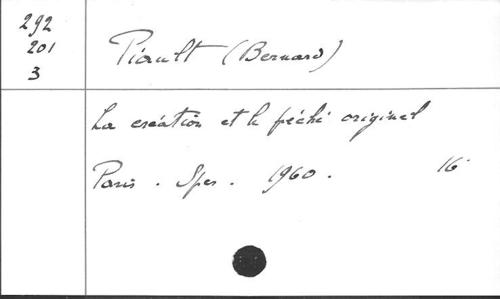 292
201
3
Piault (Bernard)
La création et le péché originel
Paris. Spes. 1960. 16°